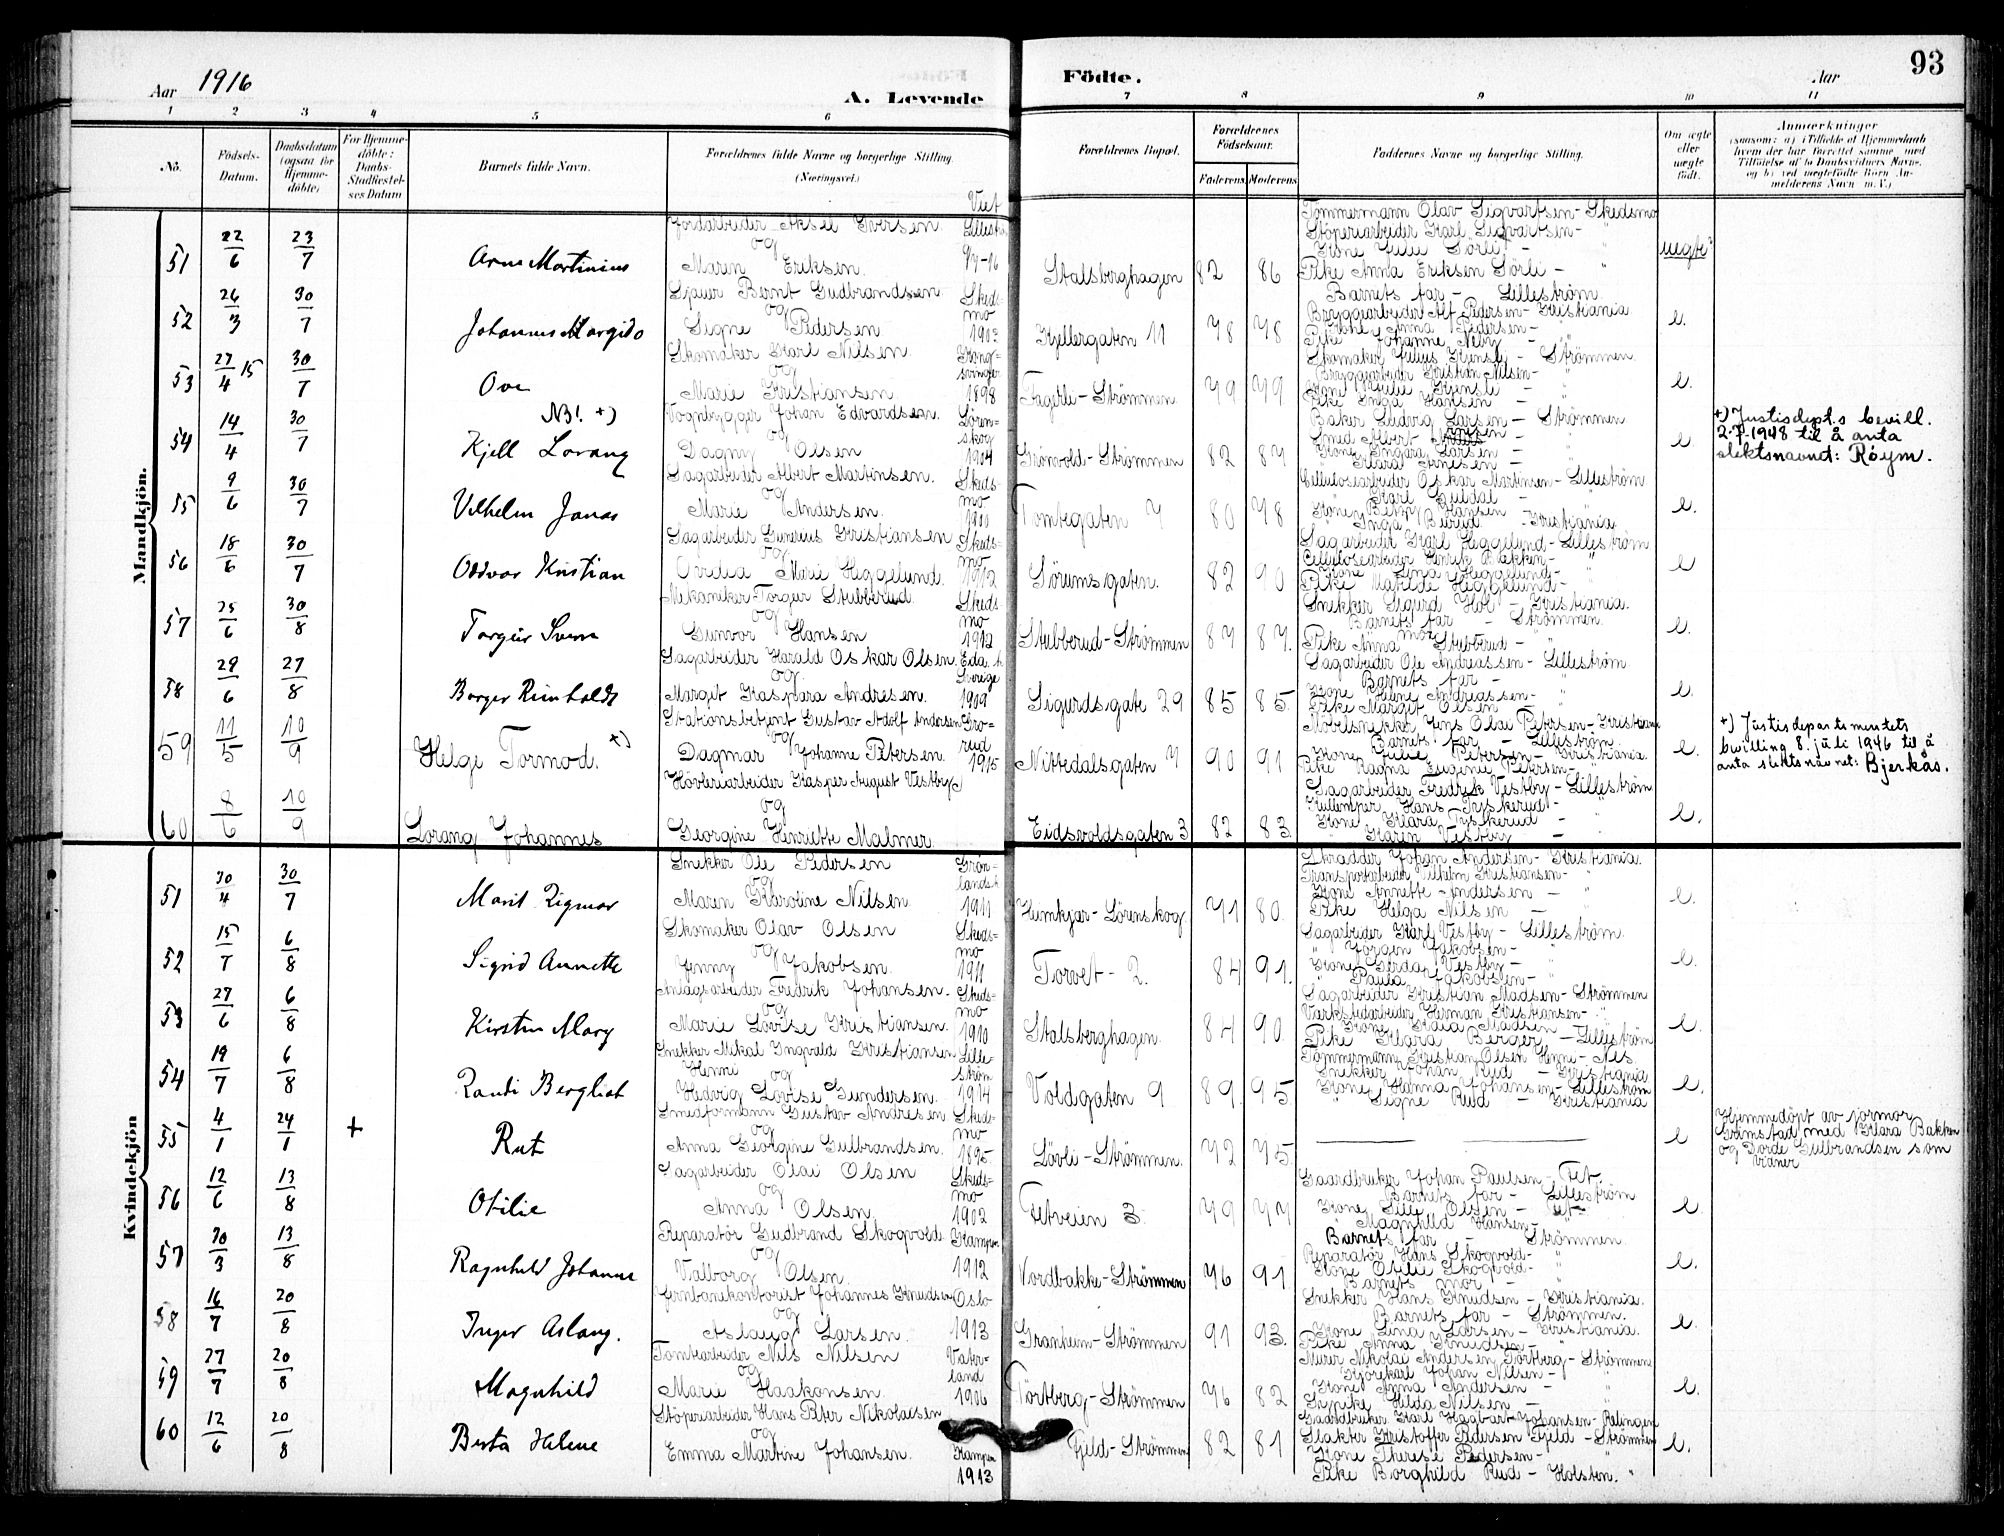 93
Aar 1916
A. Levende Födte.
Aar
1 2 3 4 5 6 7 8 9 10 11
No.
Födsels-Datum.
Daabsdatum (ogsaa for Hjemme-döbte)
For Hjemme-döbte: Daabs-Stadfæstel-ses Datum
Barnets fulde Navn.
Forældrenes fulde Navne og borgerlige Stilling. (Næringsvei.)
Viet
Forældrenes Bopæl.
Forældrenes Födselsaar.
Faderens Moderens
Faddernes Navne og borgerlige Stilling.
Om ægte eller uægte födt.
Anmærkninger
Mandkjön.
51 22/6 23/7 Arne Martinius
Jordarbeider Aksel Iversen
og
Maren Eriksen.
Stalsberghagen 82 86
Tömmermann Olav Sigvartsen - Skedsmo
Stöperiarbeider Karl Sigvartsen - "
Pike Anna Eriksen Sörli - "
Barnets far - Lilleström
uegte
52 26/3 30/7 Johannes Margido
Bernt Gudbrandsen
og
Signe Pedersen
Skedsmo 1903
Kjellergaten 11 78 78
Bryggiarbeider Alf Pedersen - Kristiania
Kone Anna Pedersen - "
Pike Johanne Neby - "
e.
53 27/4 15 30/7 Ove
Skomaker Karl Nilsen
og
Marie Kristiansen
Kongsvinger 1898
Fagerli - Strömmen 79 79
Skomaker Julius Kjensli - Strömmen
Bryggiarbeider Kristian Nilsen - "
Pike Inga Hansen - "
e.
54 14/4 30/7 NB! +) Kjell Lorang
Vognbygger Johan Edvardsen.
og
Dagny Olsen
Lörenskog 1904
Grönvold - Strömmen 82 84
Baker Ludvig Larsen - Strömmen
Smed Albert Arnesen - "
Kone Ingara Larsen - "
e
+) Justisdept.s bevill.
2-7-1948 til å anta
slektsnavnet: Röym.
55 9/6 30/7 Vilhelm Jonas
Sagarbeider Albert Martinsen.
og
Marie Andersen.
Skedsmo 1900
Tomtegaten 7 80 78
Cellulosearbeider Oskar Martinsen - Lilleström
Kone Betzy Hansen "
" Inga Burud - Kristiania
e.
56 18/6 30/7 Oddvar Kristian
Sagarbeider Gunerius Kristiansen
og
Ovidia Marie Heggelund.
Skedsmo 1912
Sörumsgaten. 82 90
Sagarbeider Karl Heggelund - Lilleström
Cellulosearbeider Henrik Bakken - "
Kone Lina Heggelund - "
Pike Matilde Heggelund - "
e
57 25/6 30/8 Torgeir Svenn
Mekaniker Torger Stubberud.
og
Gunvor Hansen
Skedsmo 1912
Stubberud - Strömmen 87 87.
Snekker Sigurd Hol - Kristiania.
Barnets far - Strömmen.
" mor - "
Pike Anna Stubberud - "
e.
58 29/6 27/8 Borger Reinholdt
Sagarbeider Harald Oskar Olsen.
og
Margit Kaspara Andresen.
Eda. Sverige 1909
Sigurdsgate 29 85 85.
Sagarbeider Ole Andreassen - Lilleström
Barnets far - "
Kone Helene Andreassen - "
Pike Margit Olsen - "
e.
59 11/5 10/9 Helge Tormod. +)
Stationsbetjent Gustav Adolf Andersen
og
Dagmar Johanne Petersen.
Grorud 1915
Nittedalsgaten 7 90 91
Möbelsnekker Jens Olai Petersen - Kristiania
Barnets far - Lilleström
Kone Julie Petersen - Kristiania.
Pike Ragna Eugenie Petersen - "
e.
+) Justisdepartementets
bevilling 8. juli 1946 til å
anta slektsnavnet: Bjerkås.
60 8/6 10/9 Lorang Johannes
Höveriarbeider Kasper August Vestby
og
Georgine Henriette Malmer.
Eidsvoldsgaten 3 82 83.
Sagarbeider Fredrik Vestby - Lilleström
Hans Tyskerud - "
Kone Klara Tyskerud - "
" Karen Vestby - "
e.
Kvindekjön
51 30/4 30/7 Marit Rigmor
Snekker Ole Pedersen
og
Maren Karoline Nilsen.
1911
Humkjær - Lörenskog. 71 80.
Skrædder Johan Andersen - Kristiania.
Transportarbeider Vilhelm Kristiansen - "
Kone Annette Andersen - "
Pike Helga Nilsen - "
e.
52 15/7 6/8 Sigrid Annette
Skomaker Olav Olsen
og
Jenny Jakobsen.
Skedsmo 1911
Torvet - 2. 84 91.
Sagarbeider Karl Vestby - Lilleström
" Jörgen Jakobsen - "
Kone Gerda Vestby - "
" Paula Jakobsen - "
e.
53 27/6 6/8 Kirsten Mary
Anlægsarbeider Fredrik Johansen.
og
Marie Lovise Kristiansen.
Skedsmo 1910
Stalsberghagen. 84 90.
Sagarbeider Kristian Madsen - Strömmen
Værkstedarbeider Herman Kristiansen - "
Kone Kaia Madsen - "
Pike Klara Berger - Lilleström
e.
54 19/7 6/8 Randi Bergliot
Snekker Mikal Ingvald Kristiansen
Henni og
Hedvig Lovise Gundersen.
Lilleström 1914
Voldgaten 9 89. 95.
Tömmermann Kristian Olsen Henni - Nes.
Snekker Johan Rud - Kristiania
Kone Hanna Johansen - Lilleström
" Signe Rud - Kristiania
e.
55 4/1 24/1 + Rut
Smedformann Gustav Andresen
og
Anna Georgine Gulbrandsen.
Skedsmo 1895.
Lövli - Strömmen. 72 75.
e
Hjemmedöpt av jormor
Grimstad med Klara Bakken
og Dorde Gulbrandsen som
vidner
56 12/6 13/8 Otilie
Sagarbeider Olai Olsen
og
Anna Olsen
Skedsmo 1902
Fetveien 3. 79 77
Gaardbruker Johan Paulsen - Fet.
Barnets far - Lilleström
Kone Lilly Olsen - Fet
" Magnhild Hansen - "
e.
57 30/3 13/8 Ragnhild Johanne
Reparatör Gudbrand Skogvold.
og
Valborg Olsen.
Kampen 1912
Nordbakke - Strömmen 76 91.
Barnets far - Strömmen.
Reparatör Hans Skogvold - "
Kone Otilie Skogvold - "
Barnets mor - "
e.
58 16/7 20/8 Inger Aslaug.
Jernbanekontorist Johannes Knudsen
og
Aslaug Larsen.
Oslo 1913
Granheim - Strömmen 91 93.
Snekker Hans Knudsen - Kristiania.
Barnets far - Strömmen.
Kone Lina Larsen - Kristiania.
Pike Anna Knudsen - "
e.
59 27/7 20/8 Magnhild
Tomtearbeider Nils Nilsen
og
Marie Haakonsen.
Vaterland 1906
Törtberg - Strömmen 76 82
Murer Nikolai Andersen Törtberg - Strömmen
Kjörekarl Johan Nilsen - "
Kone Anna Andersen - "
Hilda Nilsen - "
e.
60 12/6 20/8 Berta Helene
Stöperiarbeider Hans Peter Nikolaisen
og
Emma Martine Johansen.
Kampen 1913
Fjeld - Strömmen 82 81
Gaardbruker Karl Hagbart Johansen - Rælingen
Slakter Kristoffer Pedersen Fjeld - Strömmen
Kone Therese Pedersen - "
Pike Borghild Rud - Holsten. "
e.